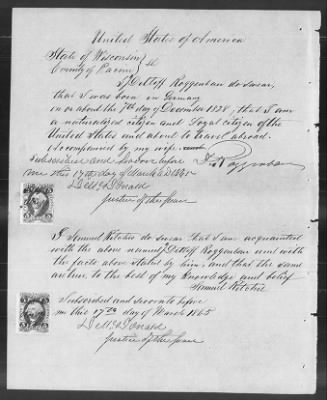 United States of America
State of Wisconsin
County of Racine } ss
I Detloff Roggenbau do swear,
that I was born in Germany
on or about the 7th day of December 1828; that I am
a naturalized citizen and Loyal citizen of the
United States and about to travel abroad,
Accompanied by my wife
Subscribed and sworn before
me this 17th day of March AD 1865
D. Roggenbau
D McDonald
Justice of the Peace
I Samuel Ritchie do swear that I am acquainted
with the above named Detloff Roggenbau and with
the facts above stated by him, and that the same
are true to the best of my Knowledge and belief
Samuel Ritchie
Subscribed and sworn to before
me this 17th day of March 1865
D McDonald
Justice of the Peace